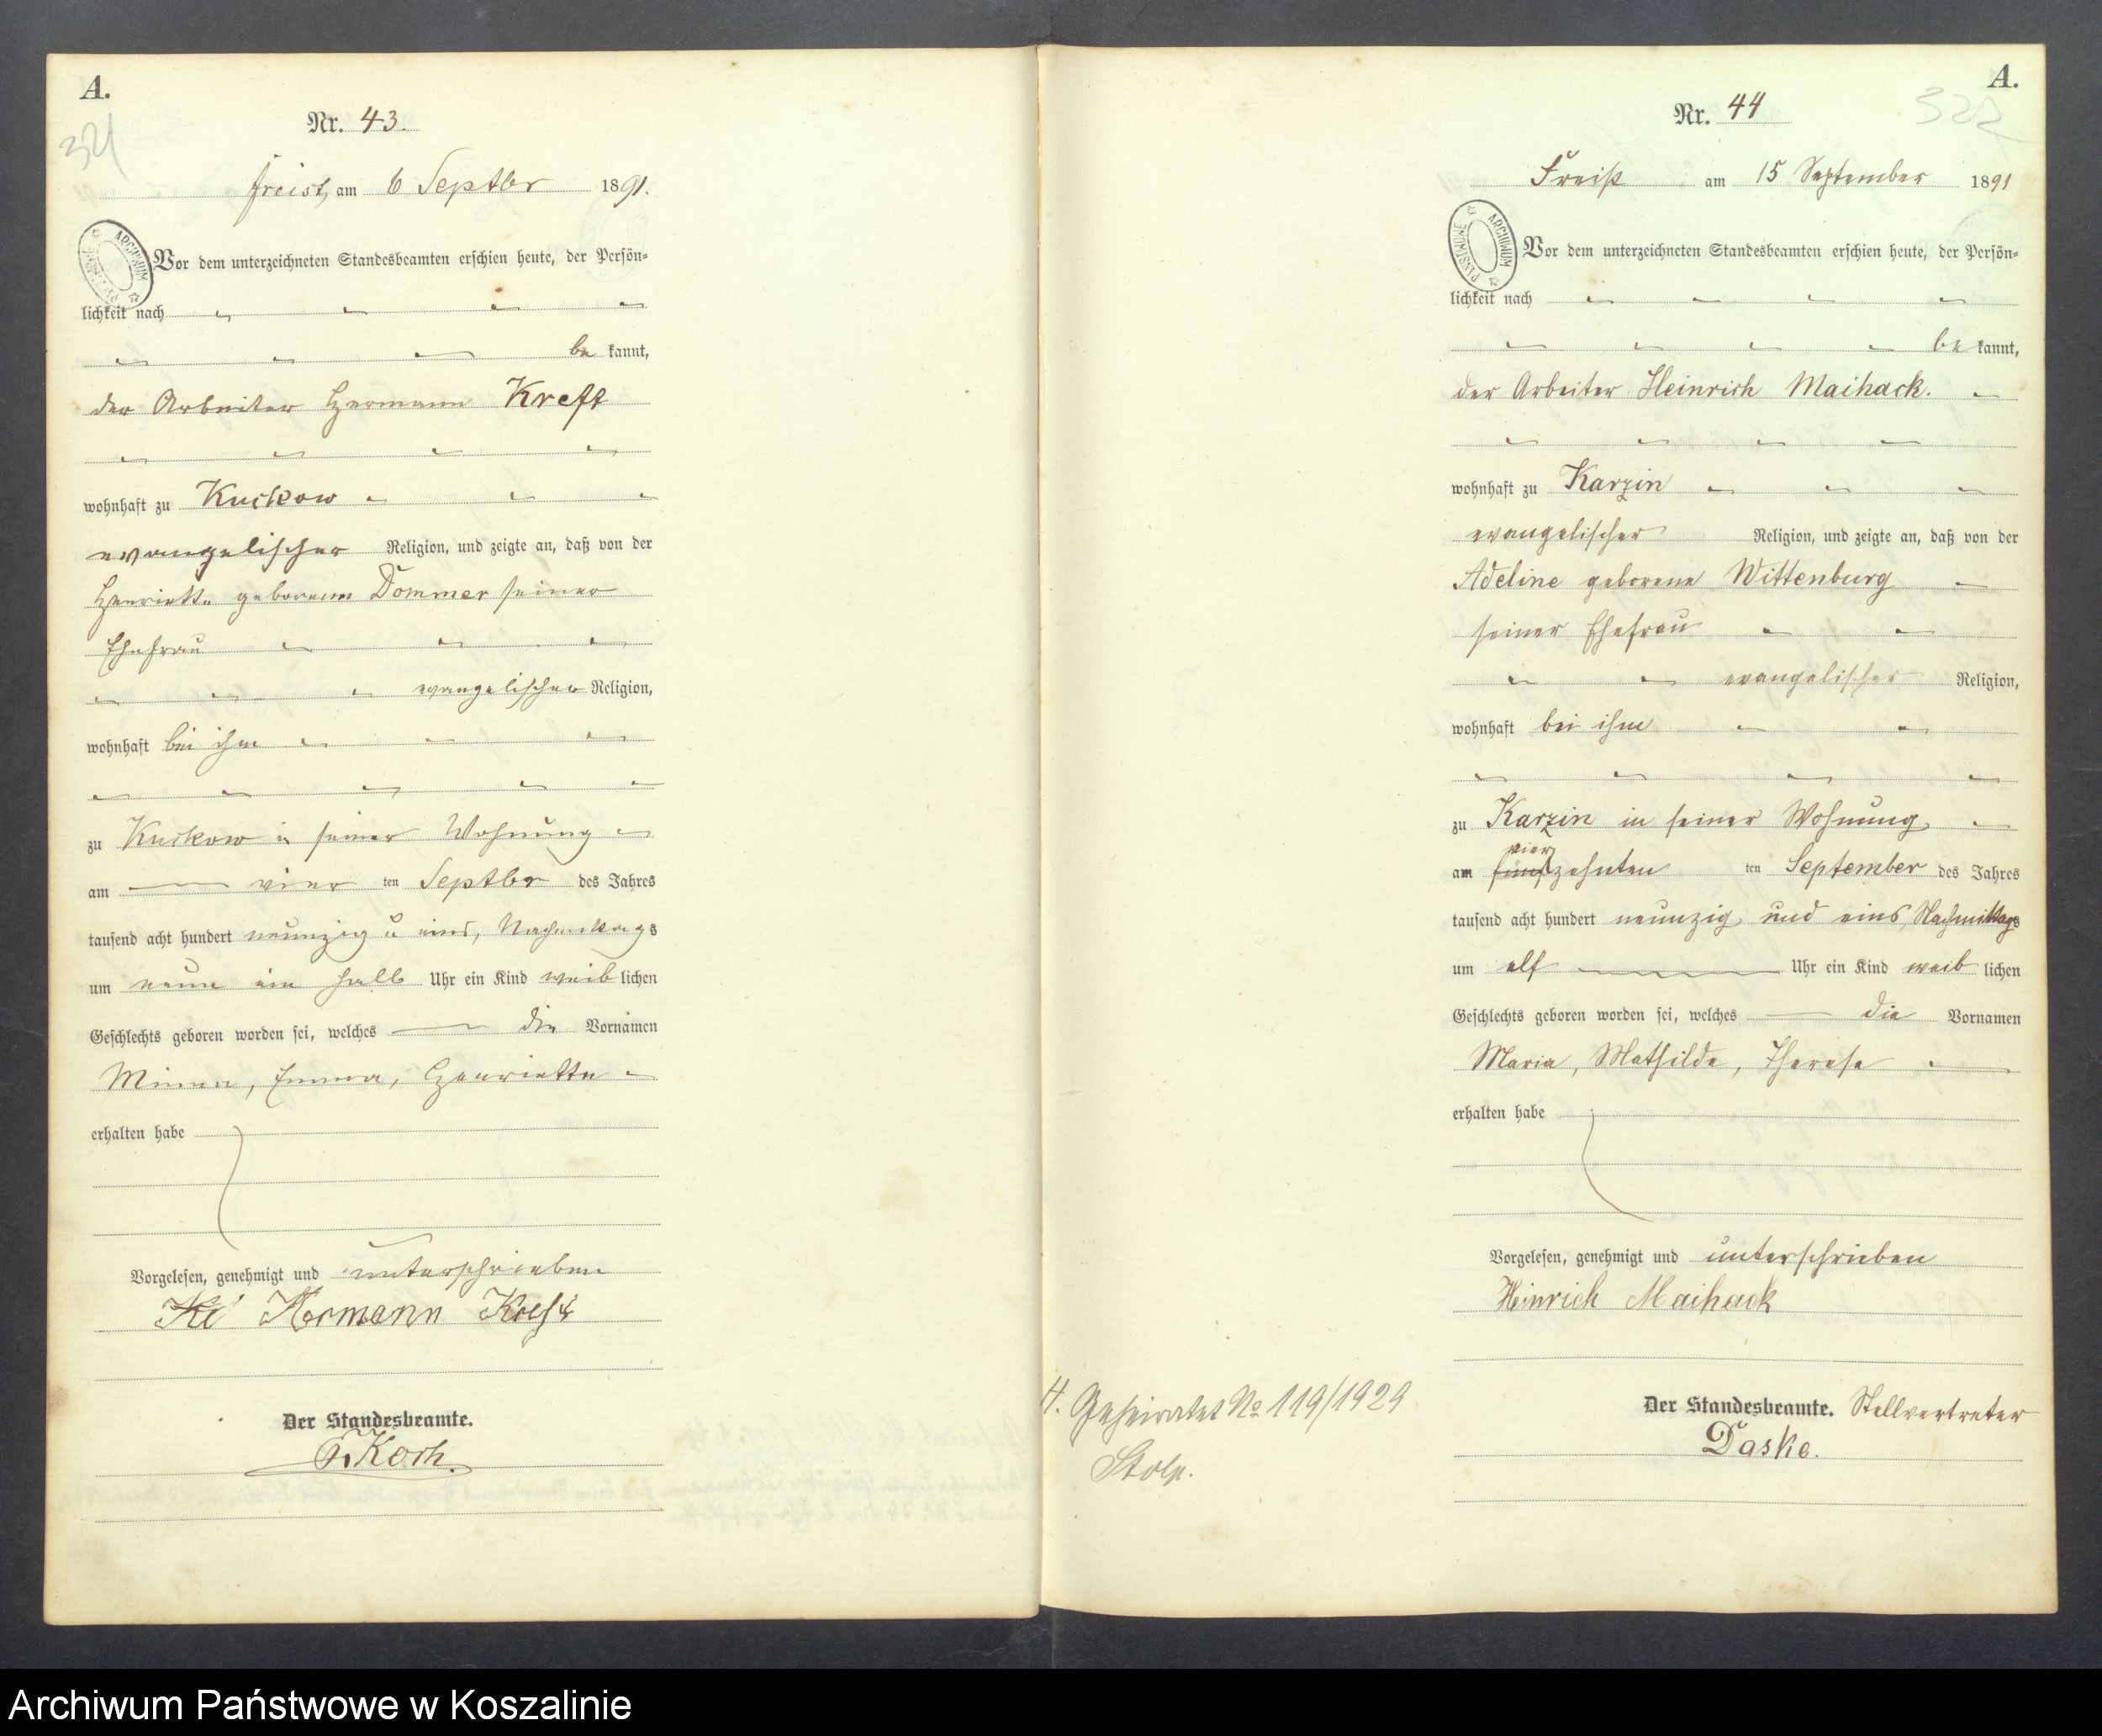 A.
321
Nr. 43.
Freist, am 6 Septbr 1891.
ARCHIWUM PAŃSTWOWE
Vor dem unterzeichneten Standesbeamten erschien heute, der Persön=
lichkeit nach
be kannt,
der Arbeiter Hermann Kreft
wohnhaft zu Kuckow
evangelischer Religion, und zeigte an, daß von der
Henriette geborenen Dommer seiner
Ehefrau
evangelischer Religion,
wohnhaft bei ihm
zu Kuckow in seiner Wohnung
am vier ten Septbr des Jahres
tausend acht hundert neunzig u eins, Nachmittags
um neun ein halb Uhr ein Kind weib lichen
Geschlechts geboren worden sei, welches die Vornamen
Minna, Emma, Henriette
erhalten habe
Vorgelesen, genehmigt und unterschrieben
Hermann Kreft
Der Standesbeamte.
Koch.
A.
322
Nr. 44
Freist am 15 September 1891
ARCHIWUM PAŃSTWOWE
Vor dem unterzeichneten Standesbeamten erschien heute, der Persön=
lichkeit nach
be kannt,
der Arbeiter Heinrich Maihack.
wohnhaft zu Karzin
evangelischer Religion, und zeigte an, daß von der
Adeline geborene Wittenburg
seiner Ehefrau
evangelischer Religion,
wohnhaft bei ihm
zu Karzin in seiner Wohnung
vier
am fünfzehnten ten September des Jahres
tausend acht hundert neunzig und eins, Nachmittags
um elf Uhr ein Kind weib lichen
Geschlechts geboren worden sei, welches die Vornamen
Maria, Mathilde, Therese
erhalten habe
Vorgelesen, genehmigt und unterschrieben
Heinrich Maihack
Der Standesbeamte. Stellvertreter
Daske.
H. Geheiratet No 119/1929
Stolp.
Archiwum Państwowe w Koszalinie